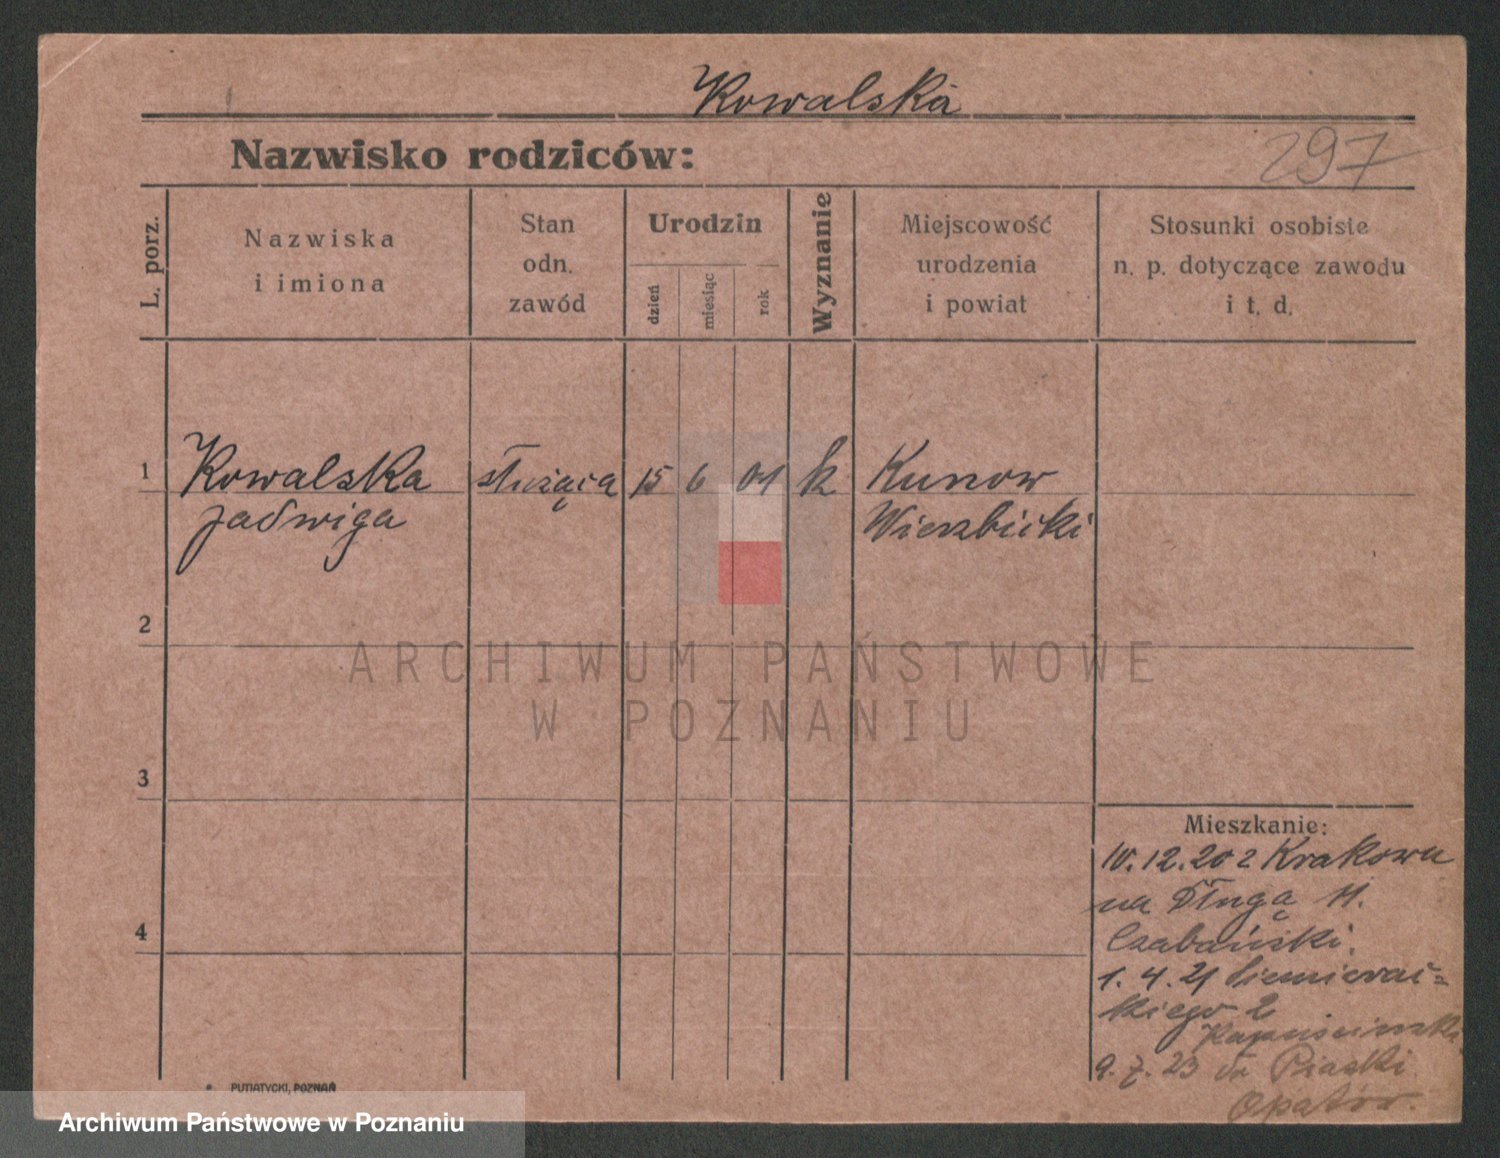 Kowalska
Nazwisko rodziców:
297
L. porz.
Nazwiska
i imiona
Stan
odn.
zawód
Urodzin
dzień
miesiąc
rok
Wyznanie
Miejscowość
urodzenia
i powiat
Stosunki osobiste
n. p. dotyczące zawodu
i t. d.
1
Kowalska służąca 15 6 01 k Kunow
Jadwiga Wierzbicki
2
ARCHIWUM PAŃSTWOWE
W POZNANIU
3
Mieszkanie:
10.12.20 z Krakowa
na Długą 11.
Czabański.
4
1. 4. 21
kiego 2
9. 7. 23 do Piaski
Opatów.
PUTIATYCKI, POZNAŃ
Archiwum Państwowe w Poznaniu